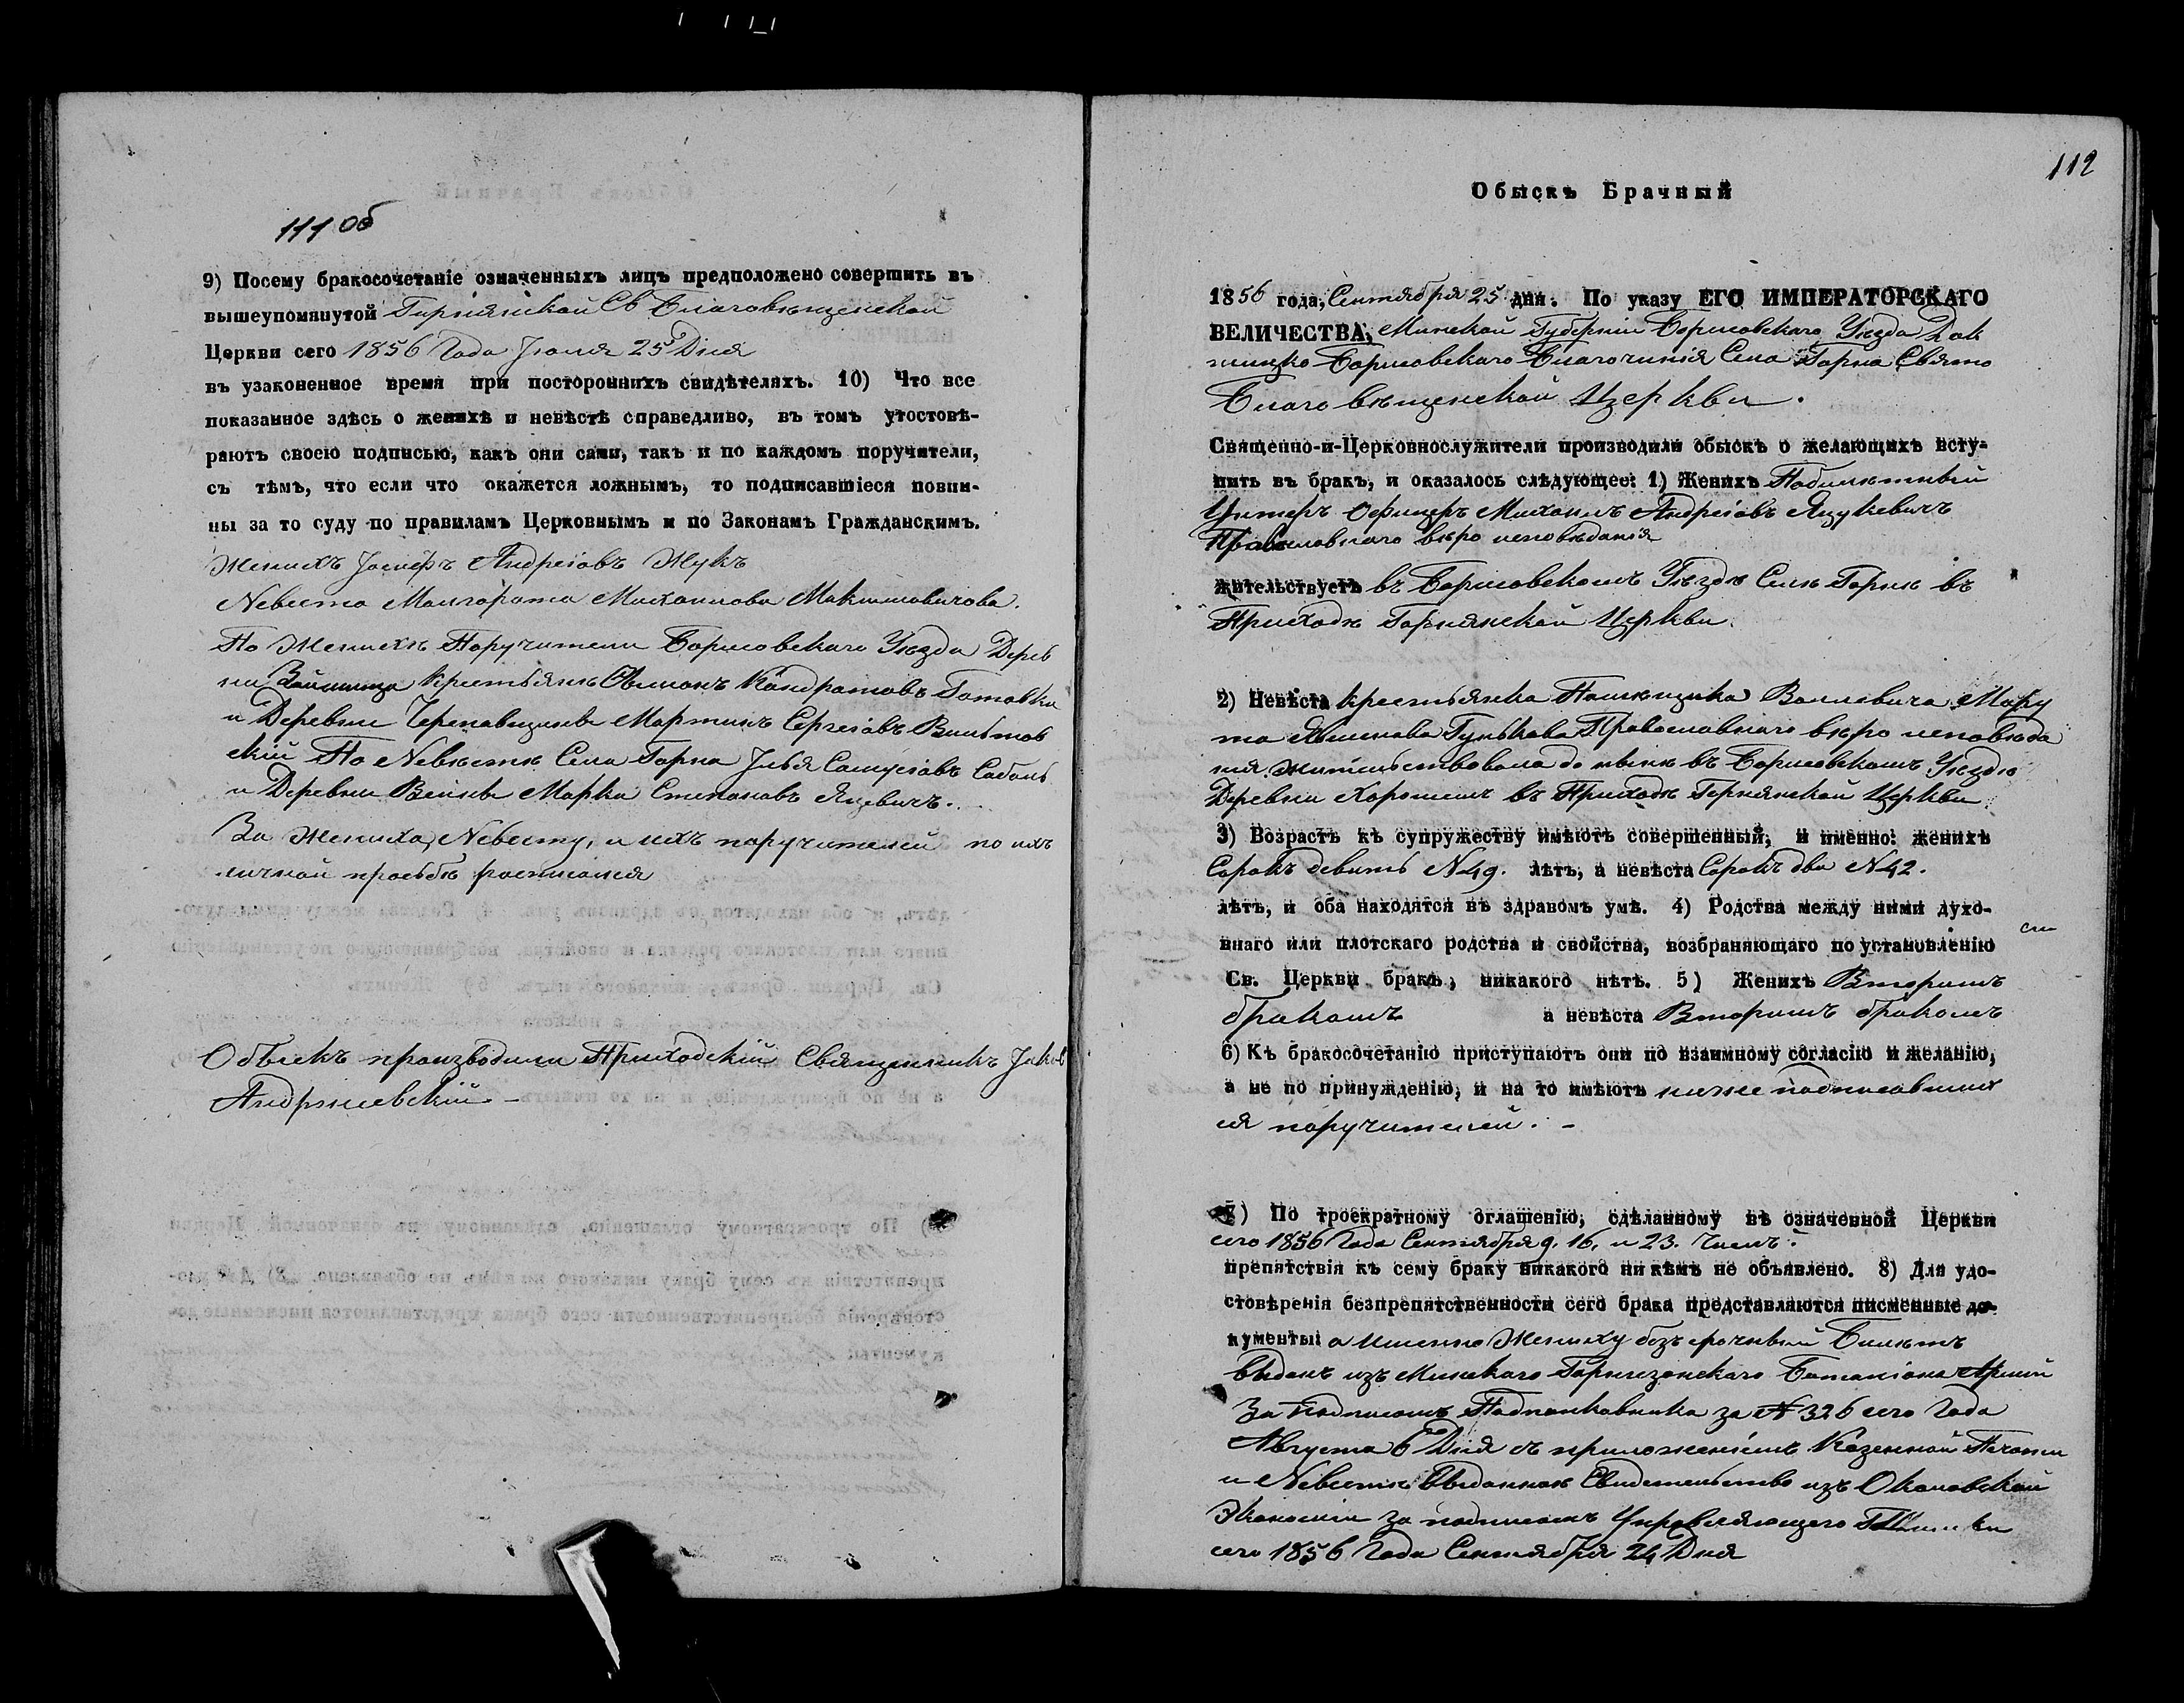 111 об
9) Посему бракосочетаніе означенныхъ лицъ предположено совершить въ
вышеупомянутой Горнянской Св Благовѣщенской
Церкви сего 1856 Года Іюля 25 Дня
въ узаконенное время при постороннихъ свидѣтеляхъ. 10) Что все
показанное здѣсь о женихѣ и невѣстѣ справедливо, въ томъ утостовѣ-
ряютъ своею подписью, какъ они сами, такъ и по каждомъ поручители,
съ тѣмъ, что если что окажется ложнымъ, то подписавшіеся повин-
ны за то суду по правиламъ Церковнымъ и по Законамъ Гражданскимъ.
Женихъ Іосифъ Андреіовъ Жукъ
Невеста Маргарата Михаилова
По Женихѣ Поручители Борисовскаго Уѣзда Дерев
ни крестьяне Кондратовъ
и Деревни Мартинъ Сергеіовъ Вильтов
скій По Невѣстѣ Села Горна Илья
и Деревни Марка Степановъ Яцевичъ.
За Жениха, Невесту, и ихъ поручителей по ихъ
личной просьбѣ росписался
Обыскъ производили Приходскій Священникъ
112
Обыскъ Брачный
1856 года, Сентября 25 дня. По указу ЕГО ИМПЕРАТОРСКАГО
ВЕЛИЧЕСТВА, Минской Губерніи Борисовскаго Уѣзда Док
шицко Борисовскаго Благочинія Села Горна Свято
Благовѣщенской Церкви.
Священно-и-Церковнослужители производили обыскъ о желающихъ всту-
пить въ бракъ, и оказалось слѣдующее: 1) Женихъ
Унтеръ Офицеръ Михаилъ Андреіовъ Яцукевичъ
Православнаго вѣро исповѣданія
жительствуетъ въ Борисовскомъ Уѣздѣ Селѣ Горнѣ въ
Приходѣ Горнянской Церкви.
2) Невѣста крестьянка Помѣщика Воллевича Мару
та Гунькова Православнаго вѣро исповѣда
нія жительствовала до нынѣ въ Борисовскомъ Уѣздѣ
Деревни въ Приходѣ Горнянской Церкви.
3) Возрастъ къ супружеству имѣютъ совершенный, и именно: женихъ
Сорокъ девять N 49. лѣтъ, а невѣста Сорокъ два N 42.
лѣтъ, и оба находятся въ здравомъ умѣ. 4) Родства между ними духо-
внаго или плотскаго родства и свойства, возбраняющаго по установленію
Св. Церкви бракъ, никакого нѣтъ. 5) Женихъ Вторимъ
бракомъ а невѣста Вторимъ бракомъ
6) Къ бракосочетанію приступаютъ они по взаимному согласію и желанію,
а не по принужденію, и на то имѣютъ ниже подписавших
ся поручителей. –
7) По троекратному оглашенію, сдѣланному въ означенной Церкви
сего 1856 Года Сентября 9, 16, и 23. Числъ.
препятствія къ сему браку никакого ни кѣмъ не объявлено. 8) Для удо-
стовѣренія безпрепятственности сего брака представляются писменные до-
кументы: а именно Жениху безсрочный Билѣтъ
выданъ изъ Минскаго Гарнизонскаго Баталіона Арміи
За Подписомъ Подполковника за № 326 сего Года
Августа 6 Дня съ приложеніемъ Козенной Печати
и Невестѣ Выданное Свидетельство изъ
Экономіи за подписомъ Управляющего
сего 1856 Года Сентября 24 Дня